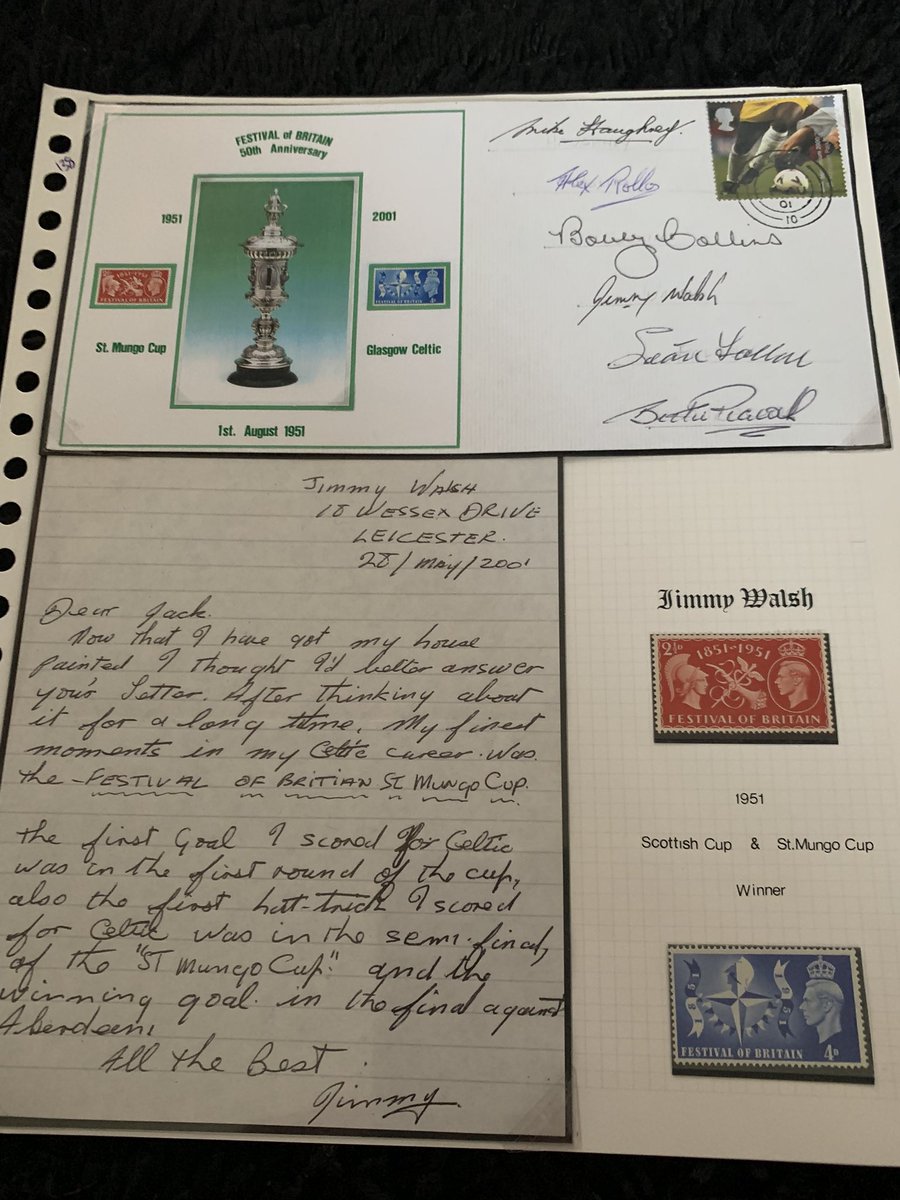 FESTIVAL of BRITAIN
50th Anniversary
1951 2001
1851-1951
FESTIVAL OF BRITAIN
FESTIVAL OF BRITAIN 4D
St. Mungo Cup Glasgow Celtic
1st. August 1951
Mike Haughney.
Alex Rollo
Bobby Collins
Jimmy Walsh
Seán Fallon
Bertie Peacock
01
10
Jimmy Walsh
18 WESSEX DRIVE
LEICESTER.
28/May/2001
Dear Jack.
Now that I have got my house
painted I thought I'd better answer
your's letter. After thinking about
it for a long time. My finest
moments in my Celtic career was
the FESTIVAL OF BRITIAN ST MUNGO CUP.
the first Goal I scored for Celtic
was in the first round of the cup,
also the first hat-trick I scored
for Celtic was in the semi-final,
of the "ST MUNGO CUP" and the
winning goal in the final against
Aberdeen.
All the Best.
Jimmy.
Jimmy Walsh
2½D 1851-1951
FESTIVAL OF BRITAIN
1951
Scottish Cup & St.Mungo Cup
Winner
1851 1951
FESTIVAL OF BRITAIN 4D